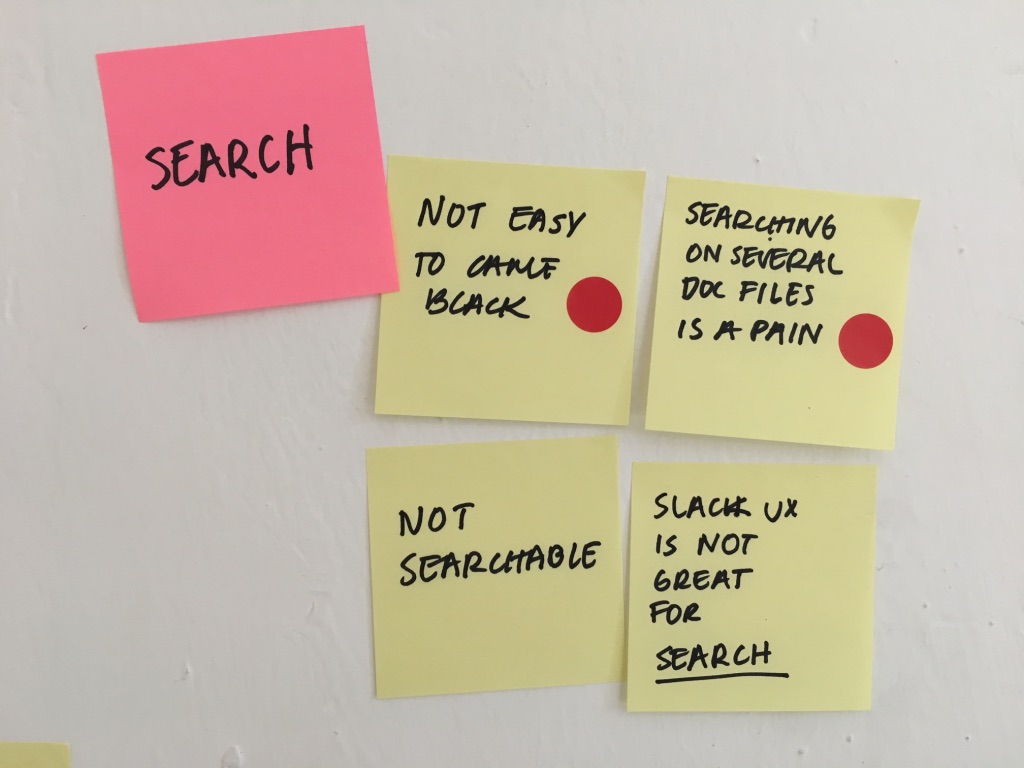 SEARCH
NOT EASY
TO
SEARCHING
ON SEVERAL
DOC FILES
IS A PAIN
NOT
SEARCHABLE
SLACK UX
IS NOT
GREAT
FOR
SEARCH